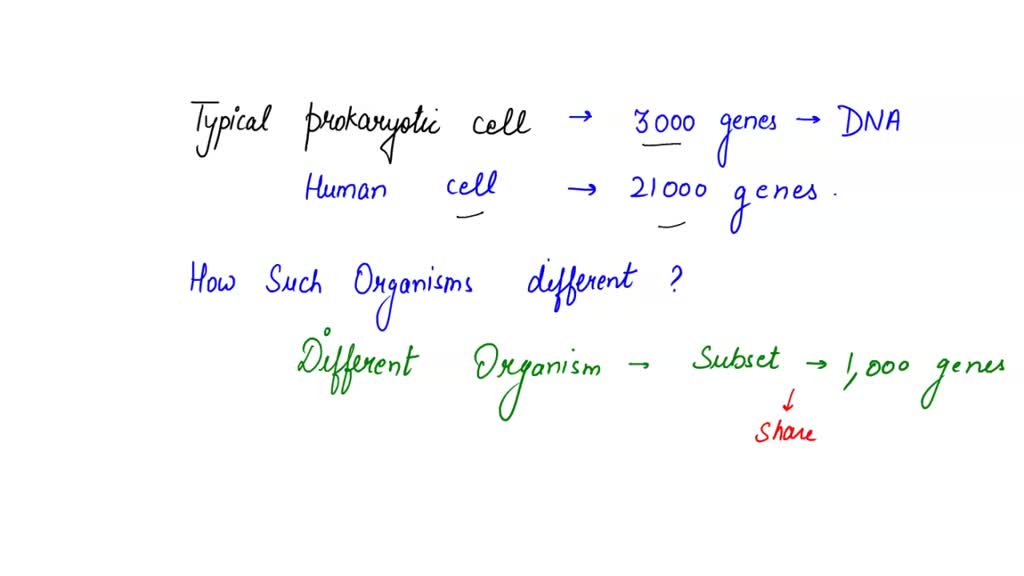 Typical prokaryotic cell → 3000 genes → DNA
Human cell → 21000 genes.
How Such Organisms different ?
Different Organism → Subset → 1,000 genes
↓
Share